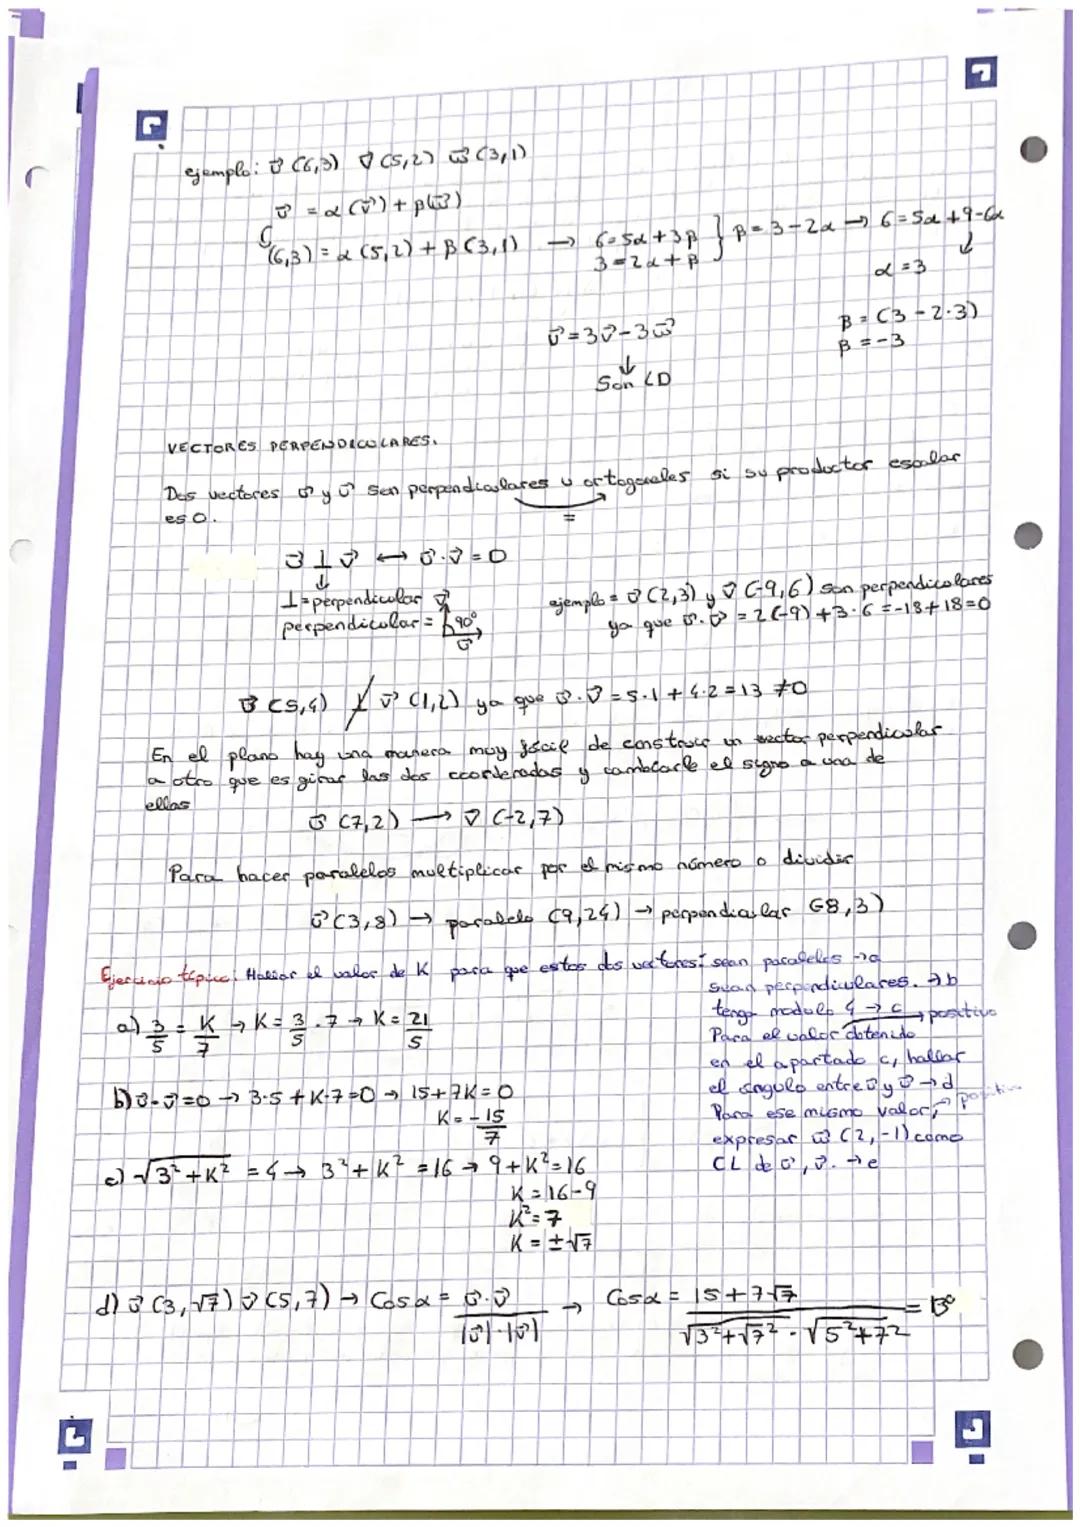 ejemplo: u⃗ (6,3) v⃗ (5,2) w⃗ (3,1)
u⃗ = α (v⃗) + β(w⃗)
(6,3) = α (5,2) + β (3,1) → 6=5α+3β } β=3-2α → 6=5α+9-6α
3=2α+β
α=3
β=(3-2·3)
β=-3
u⃗=3v⃗-3w⃗
↓
Son LD
VECTORES PERPENDICULARES.
Dos vectores u⃗ y v⃗ son perpendiculares u ortogonales si su productor escalar
es 0.
=
u⃗ ⊥ v⃗ ↔ u⃗·v⃗ = 0
↓
⊥=perpendicular v⃗
perpendicular = 90°
u⃗
ejemplo = u⃗ (2,3) y v⃗ (-9,6) son perpendiculares
ya que u⃗·v⃗ = 2(-9)+3·6=-18+18=0
u⃗ (5,4) ⊥̸ v⃗ (1,2) ya que u⃗·v⃗=5·1+4·2=13≠0
En el plano hay una manera muy fácil de construir un vector perpendicular
a otro que es girar las dos coordenadas y cambiarle el signo a una de
ellas
u⃗ (7,2) → v⃗ (-2,7)
Para hacer paralelos multiplicar por el mismo número o dividir
u⃗ (3,8) → paralelo (9,24) → perpendicular (-8,3)
Ejercicio típico: Hallar el valor de K para que estos dos vectores: sean paralelos → a
sean perpendiculares. → b
tenga modulo 4 → c → positivo
Para el valor obtenido
en el apartado c, hallar
el ángulo entre u⃗ y v⃗ → d
Para ese mismo valor, → positivo
expresar w⃗ (2,-1) como
CL de u⃗, v⃗. → e
a) 3/5 = K/7 → K = 3/5 · 7 → K = 21/5
b) u⃗·v⃗=0 → 3·5+K·7=0 → 15+7K=0
K=-15/7
c) √3²+K² = 4 → 3²+K²=16 → 9+K²=16
K=16-9
K²=7
K=±√7
d) u⃗ (3,√7) v⃗ (5,7) → Cosα = u⃗·v⃗ / |u⃗|·|v⃗| → Cosα = 15+7√7 / √3²+√7² · √5²+7² = 13°